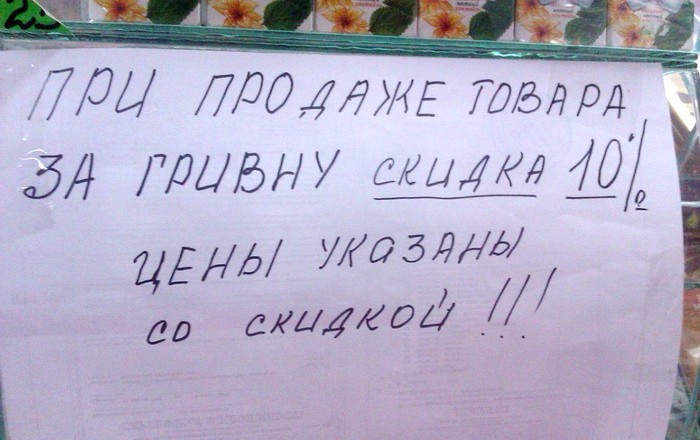 ПРИ ПРОДАЖЕ ТОВАРА
ЗА ГРИВНУ СКИДКА 10%
ЦЕНЫ УКАЗАНЫ
СО СКИДКОЙ!!!